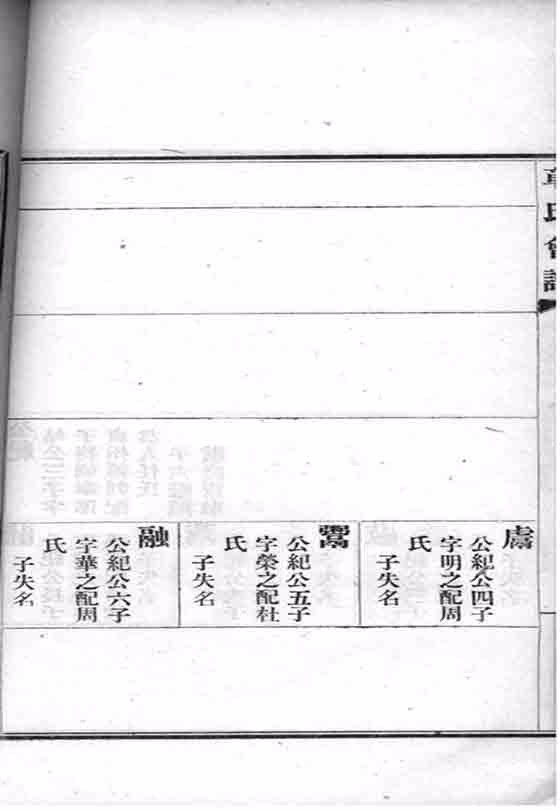 章氏會譜
鬳
公紀公四子
字明之配周
氏
子失名
鬻
公紀公五子
字榮之配杜
氏
子失名
融
公紀公六子
字華之配周
氏
子失名